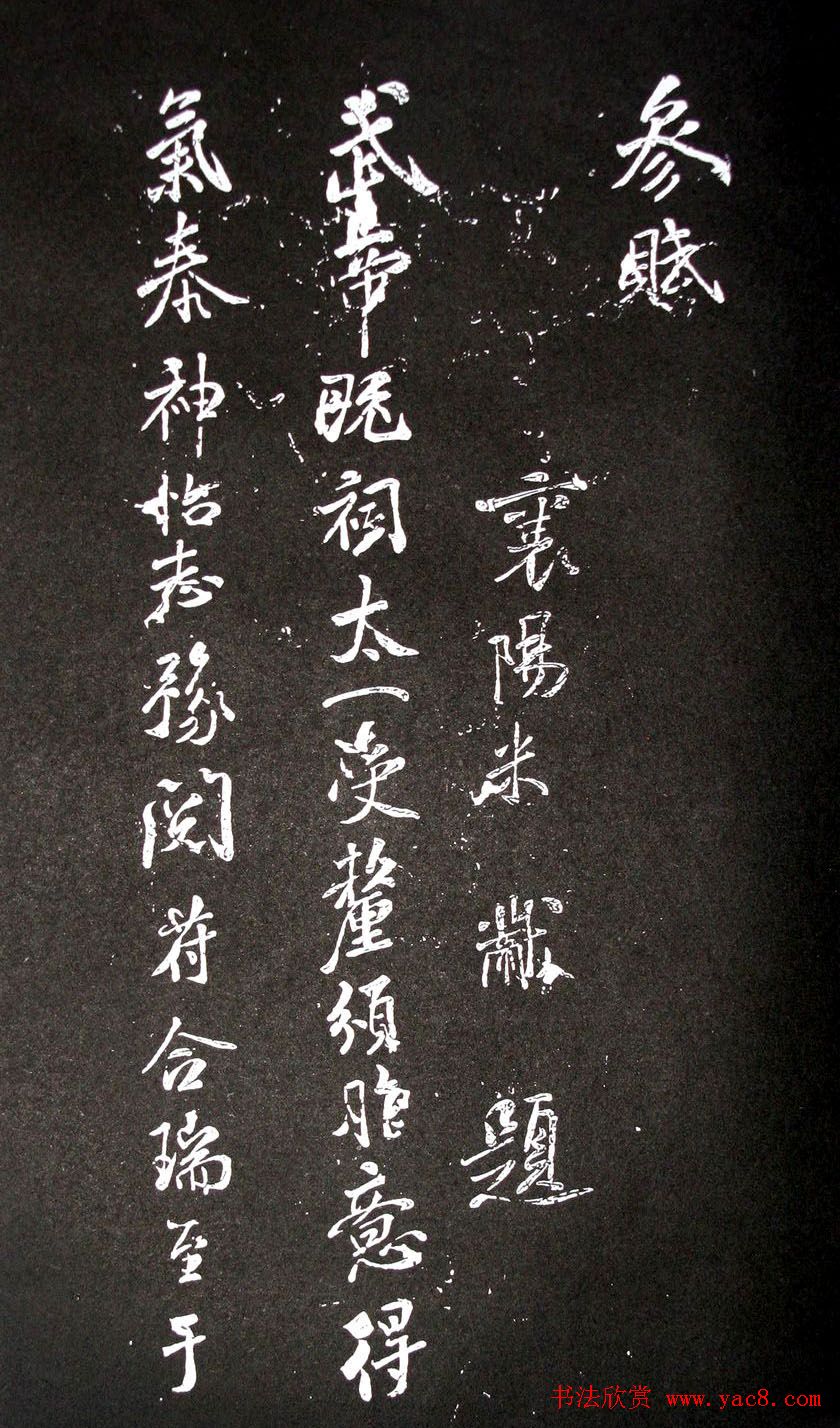 參賦
襄陽米黻題
武帝既祠太一受釐頒胙意得
氣泰神怡志豫閱符合瑞至于
书法欣赏 www.yac8.com